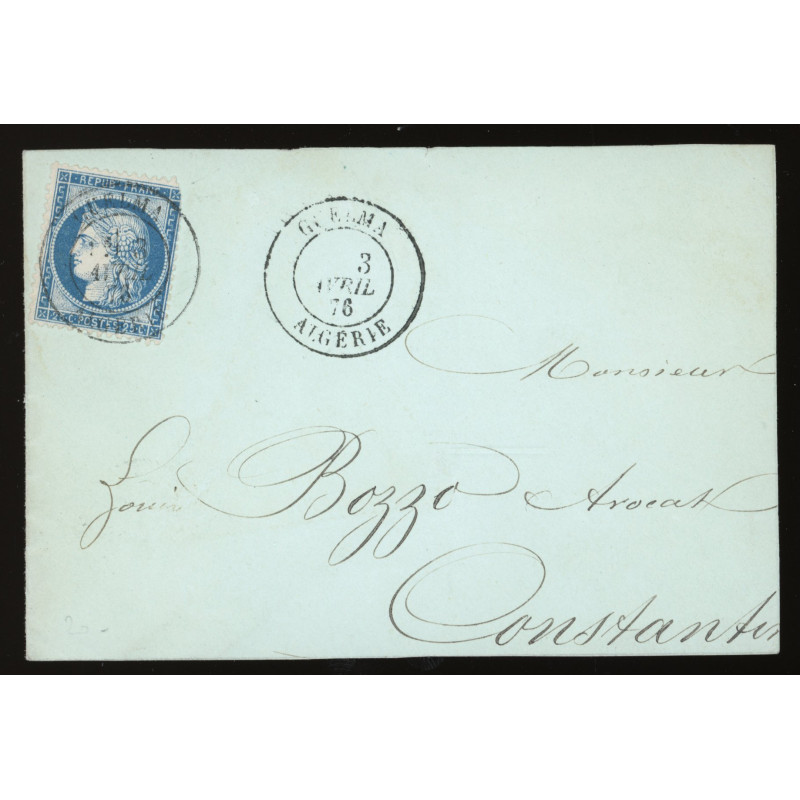 REPUB. FRANC.
GUELMA
3
AVRIL
25 C. POSTES 25 C.
GUELMA
3
AVRIL
76
ALGÉRIE
Monsieur
Louis Bozzo Avocat
Constantin
20-